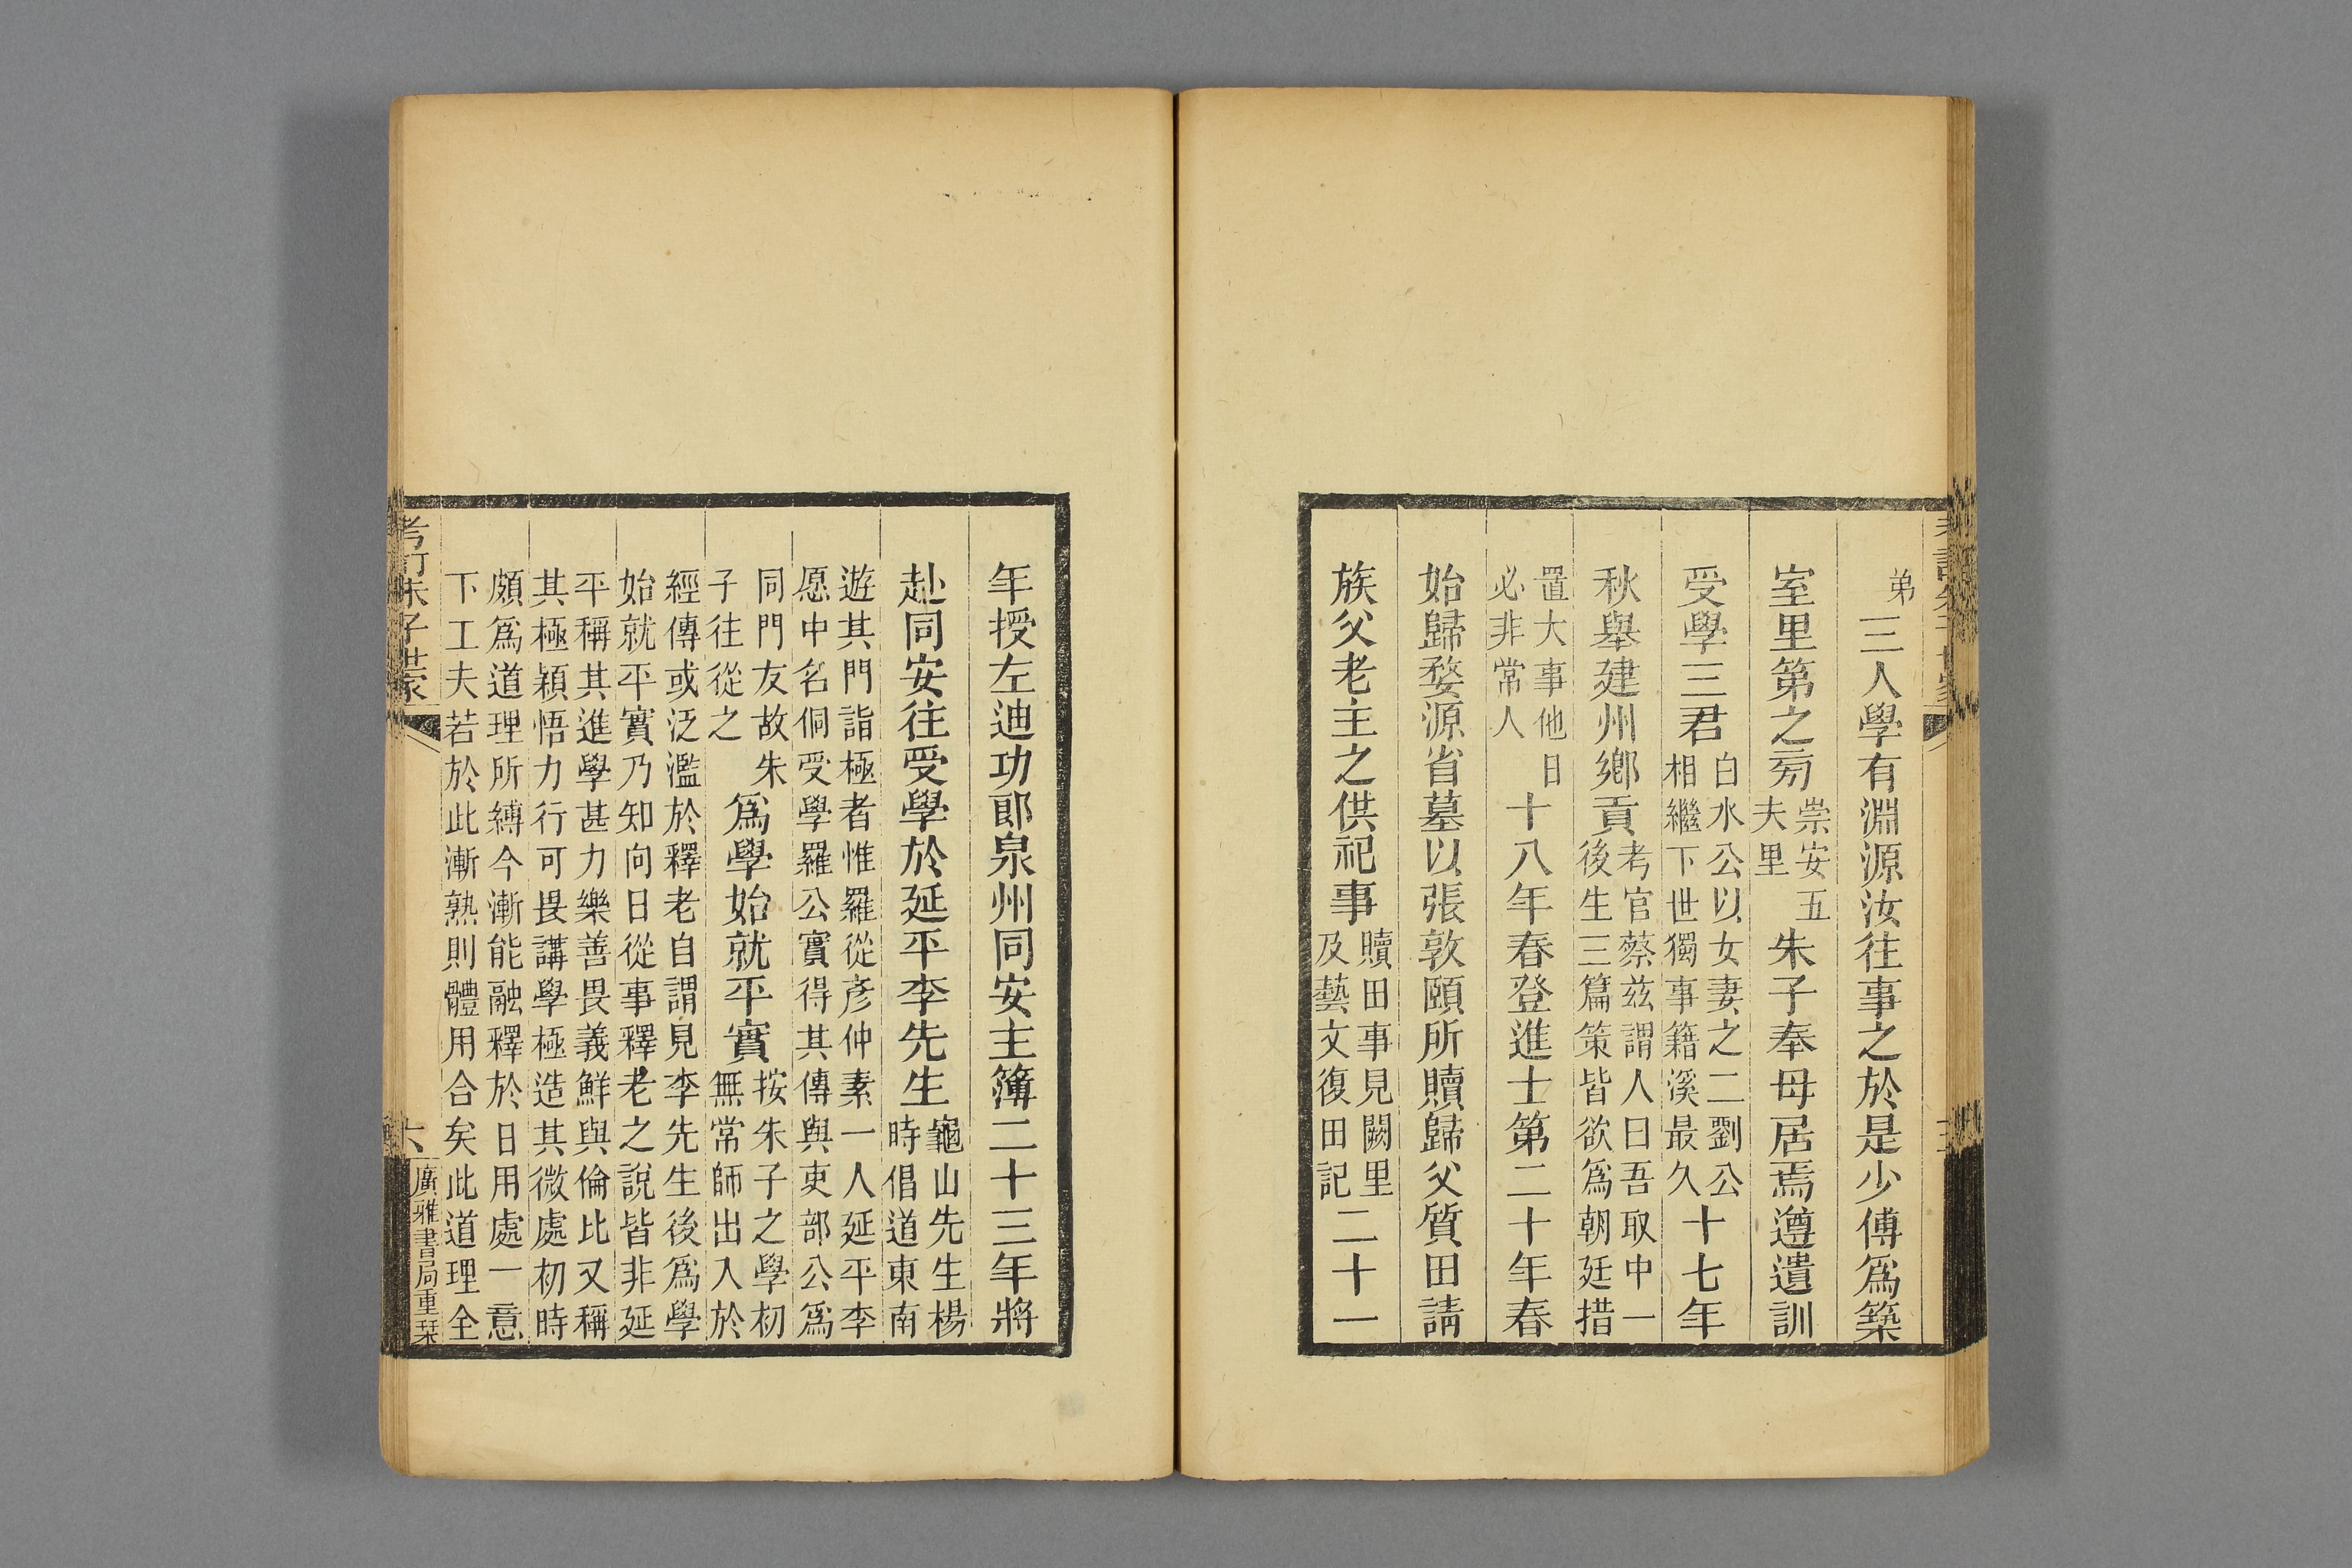 弟三人學有淵源汝往事之於是少傅爲築
室里第之旁崇安五夫里朱子奉母居焉遵遺訓
受學三君白水公以女妻之二劉公相繼下世獨事籍溪最久十七年
秋舉建州鄉貢考官蔡兹謂人曰吾取中一後生三篇策皆欲爲朝廷措
置大事他日必非常人十八年春登進士第二十年春
始歸婺源省墓以張敦頤所贖歸父質田請
族父老主之供祀事贖田事見闕里及藝文復田記二十一
年授左迪功郎泉州同安主簿二十三年將
赴同安往受學於延平李先生龜山先生楊時倡道東南
遊其門詣極者惟羅從彥仲素一人延平李愿中名侗受學羅公實得其傳與吏部公爲
同門友故朱子往從之爲學始就平實按朱子之學初無常師出入於
經傳或泛濫於釋老自謂見李先生後爲學始就平實乃知向日從事釋老之說皆非延
平稱其進學甚力樂善畏義鮮與倫比又稱其極穎悟力行可畏講學極造其微處初時
頗爲道理所縛今漸能融釋於日用處一意下工夫若於此漸熟則體用合矣此道理全
考訂朱子世家
六
廣雅書局重栞